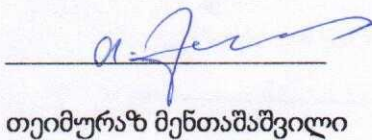 თეიმურაზ მენთაშაშვილი